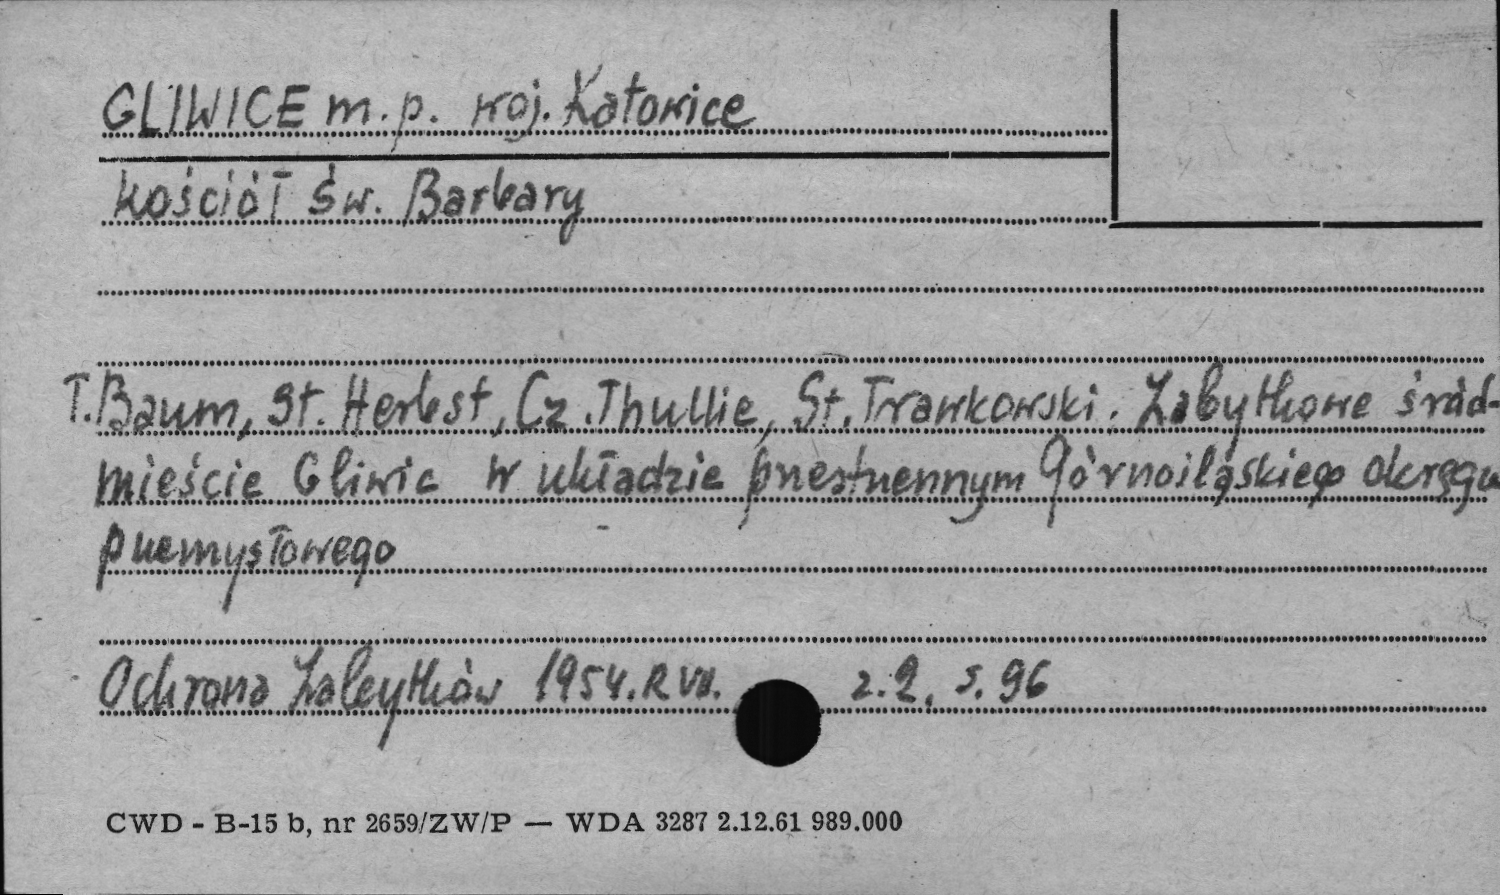 GLIWICE m.p. woj. Katowice
kościół św. Barbary
T. Baum, St. Herbst, Cz. Thullie, St. Trawkowski. Zabytkowe śród-
mieście Gliwic w układzie przestrzennym Górnośląskiego okręgu
przemysłowego
Ochrona Zabytków 1954. R VII. z. 2. s. 96
CWD - B-15 b, nr 2659/ZW/P — WDA 3287 2.12.61 989.000